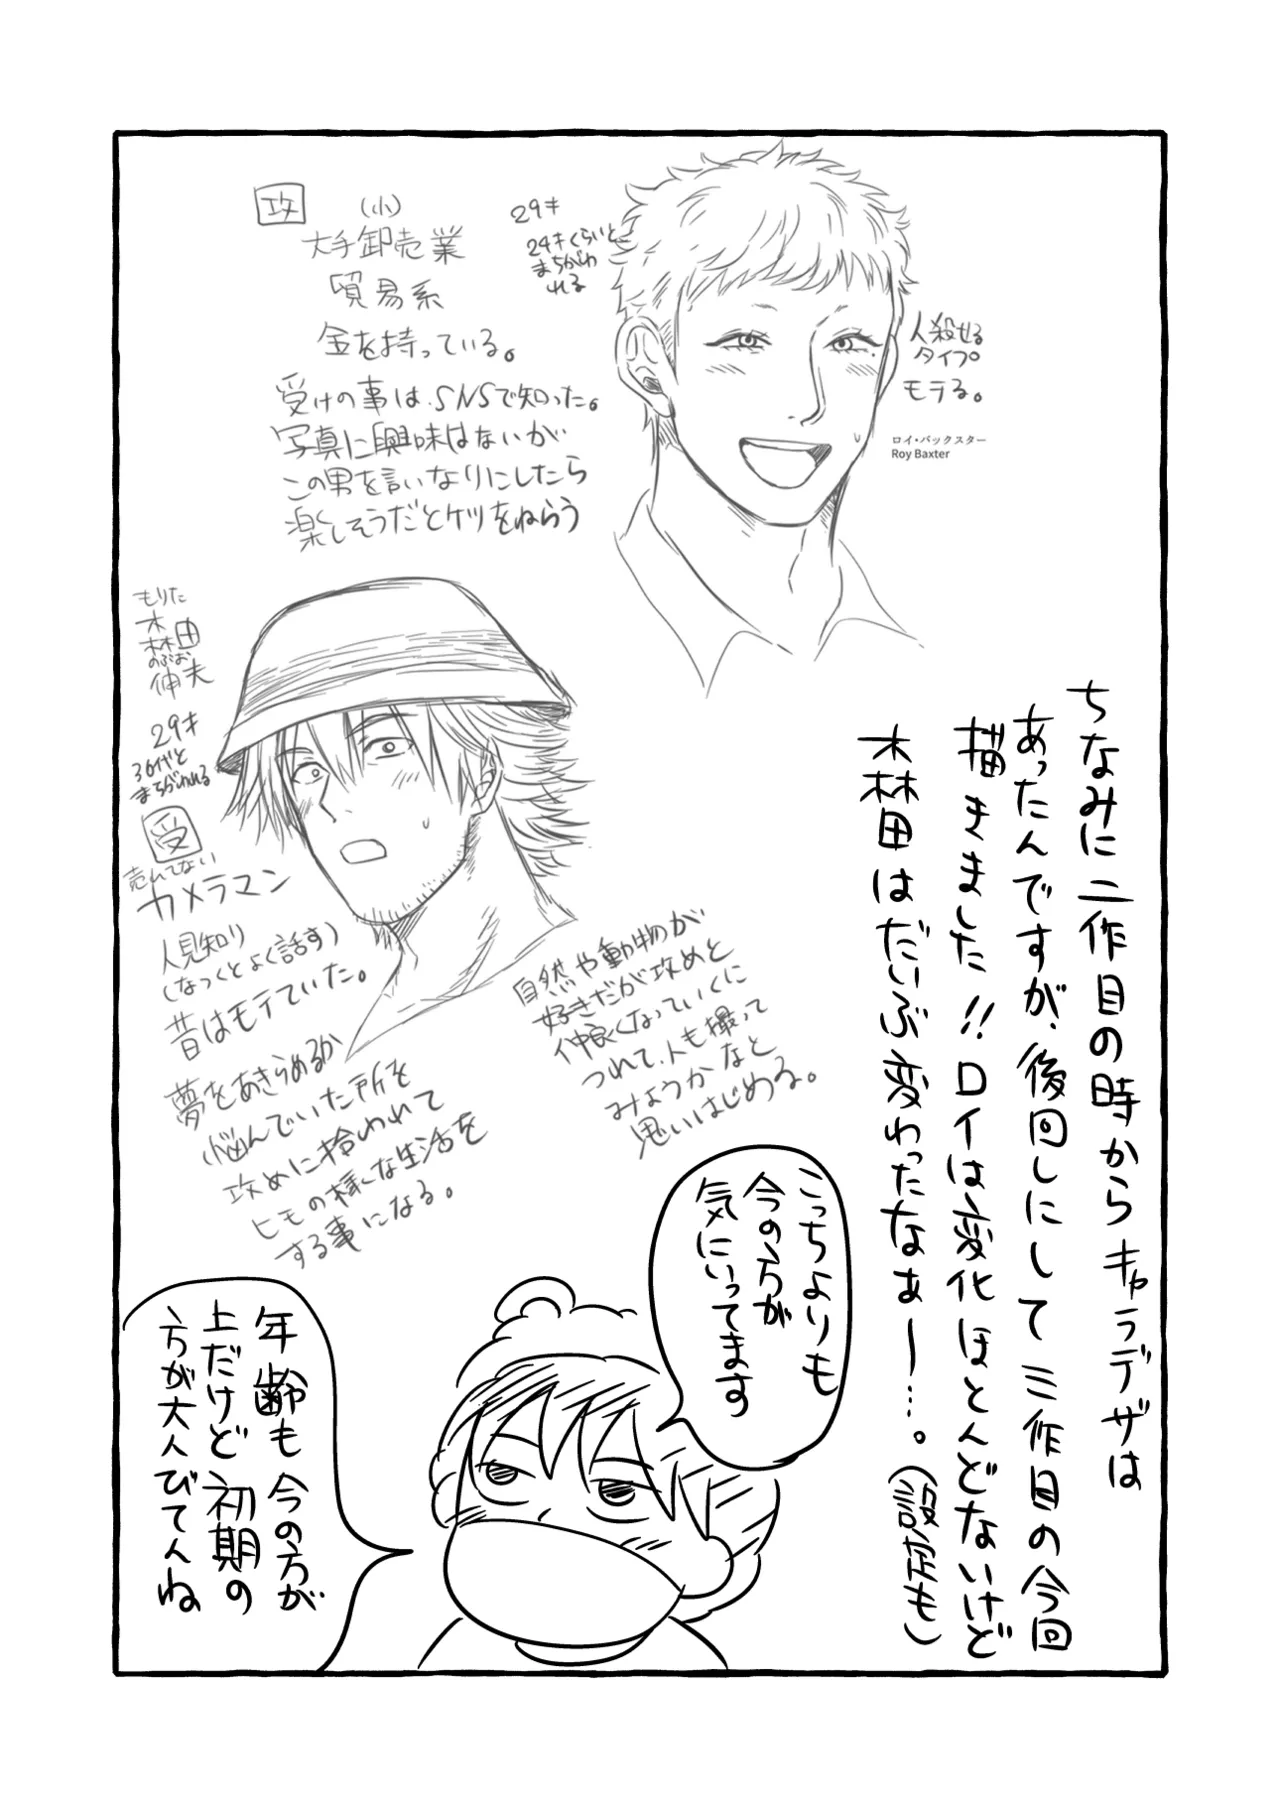 攻
(小)
大手卸売業
貿易系
金を持っている。
受けの事は、SNSで知った。
写真に興味はないが
この男を言いなりにしたら
楽しそうだとケツをねらう
29才
24才くらいと
まちがわ
れる
人殺せる
タイプ。
モテる。
ロイ・バックスター
Roy Baxter
もりた
森田
のぶお
伸夫
29才
30代と
まちがわれる
受
売れてない
カメラマン
人見知り
(なつくとよく話す)
昔はモテていた。
夢をあきらめるか
悩んでいた所を
攻めに拾われて
ヒモの様な生活を
する事になる。
自然や動物が
好きだが攻めと
仲良くなっていくに
つれて、人も撮って
みようかなと
思いはじめる。
ちなみに二作目の時からキャラデザは
あったんですが、後回しにして三作目の今回
描きました!!ロイは変化ほとんどないけど
森田はだいぶ変わったなぁー…。(設定も)
こっちよりも
今の方が
気にいってます
年齢も今の方が
上だけど初期の
方が大人びてんね